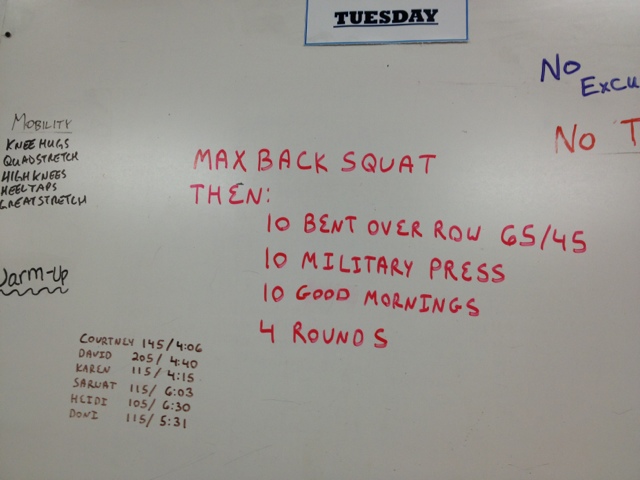 TUESDAY
No
Excu
No T
MOBILITY
KNEE HUGS
QUADSTRETCH
HIGH KNEES
HEEL TAPS
GREAT STRETCH
Warm-Up
MAX BACK SQUAT
THEN:
10 BENT OVER ROW 65/45
10 MILITARY PRESS
10 GOOD MORNINGS
4 ROUNDS
COURTNEY 145/4:06
DAVID 205/4:40
KAREN 115/4:15
SARWAT 115/6:03
HEIDI 105/6:30
DONI 115/5:31